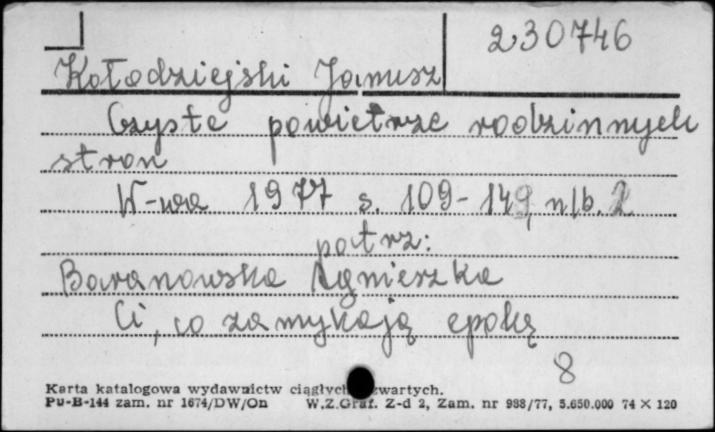 230746
Kołodziejski Janusz
Czyste powietrze rodzinnych
stron
W-wa 1977 s. 109-149, nlb. 2
patrz:
Baranowska Agnieszka
Ci, co zamykają epokę
8
Karta katalogowa wydawnictw ciągłych zwartych.
Pu-B-144 zam. nr 1674/DW/On W.Z.Graf. Z-d 2, Zam. nr 988/77, 5.650.000 74 × 120